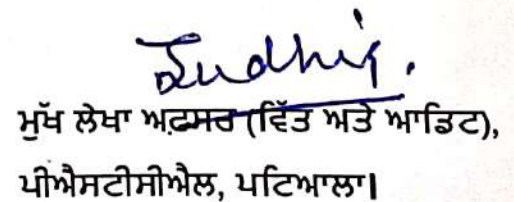 Sudhir.
ਮੁੱਖ ਲੇਖਾ ਅਫ਼ਸਰ (ਵਿੱਤ ਅਤੇ ਆਡਿਟ),
ਪੀਐਸਟੀਸੀਐਲ, ਪਟਿਆਲਾ।